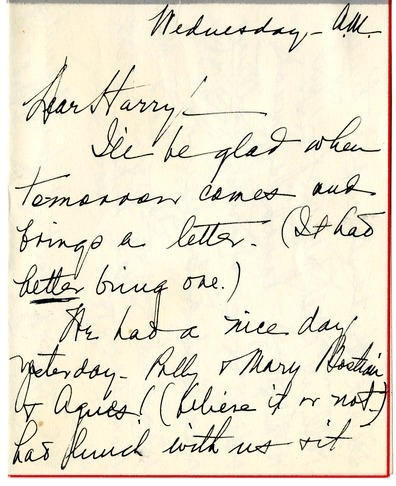 Wednesday - A.M.
Dear Harry! -
I'll be glad when
tomorrow comes and
brings a letter. (It had
better bring one.)
We had a nice day
yesterday - Polly & Mary
& Agnes! (believe it or not -)
had lunch with us & it